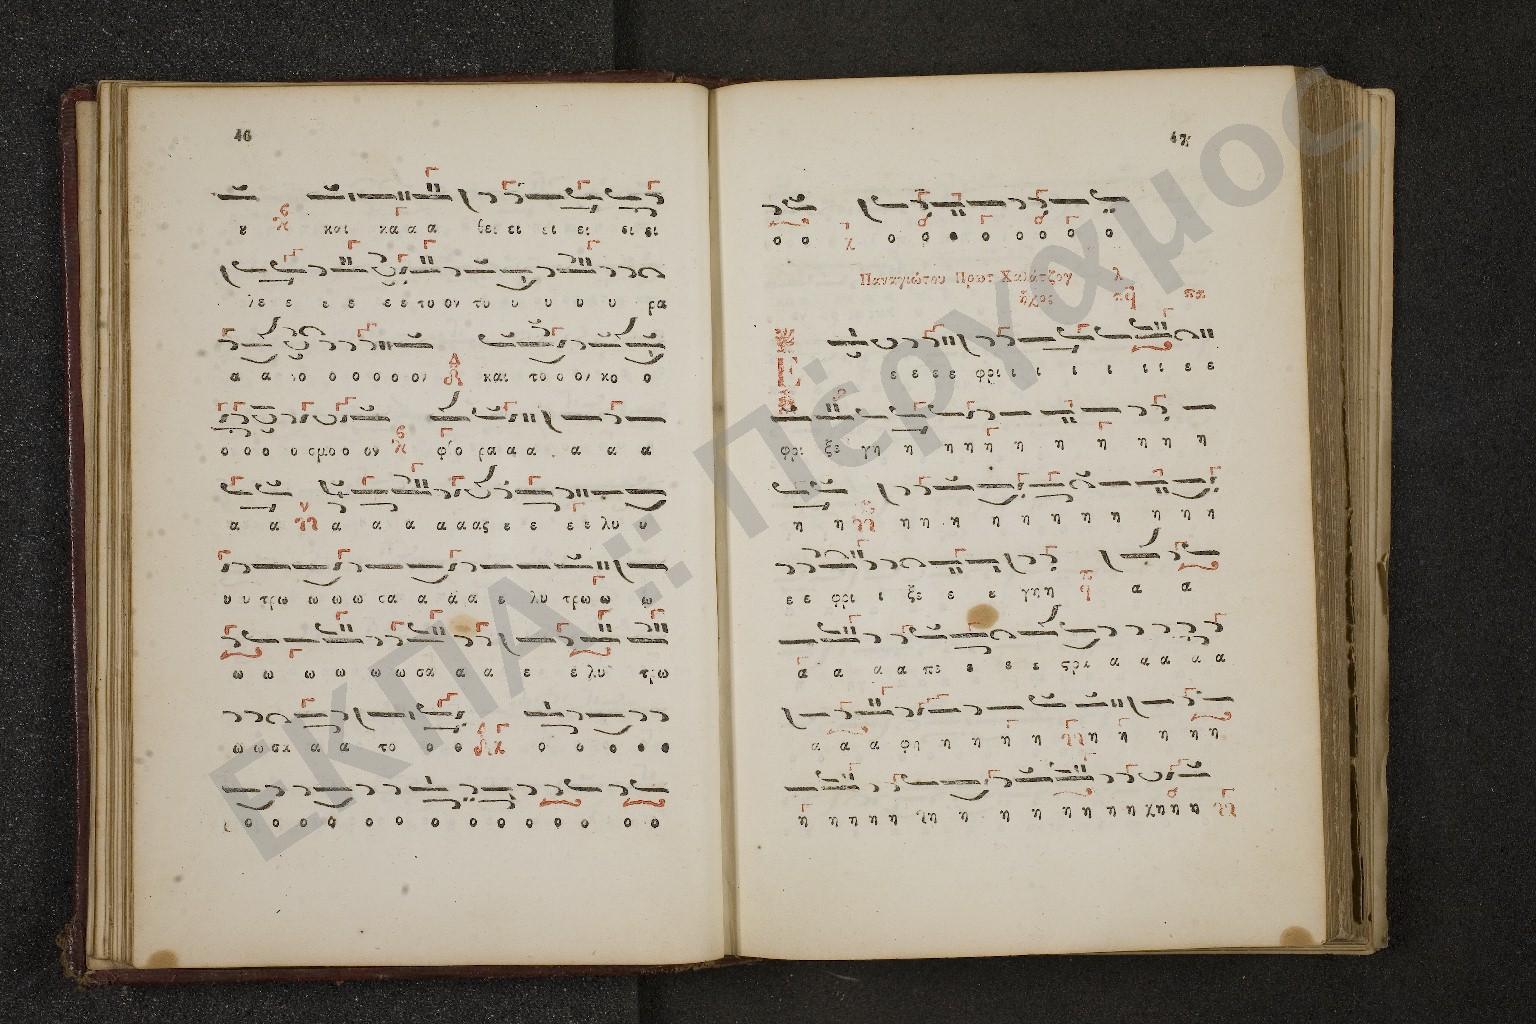 46
υ και κα α α θει ει ει ει ει ει
λε ε ε ε ε ε του ον τυ υ υ υ υ ρα
α α το ο ο ο ο ον και το ο ον κο ο
ο ο ο ο σμο ο ον φο ρα α α α α α
α α α α α α α ας ε ε ε ε λυ υ
υ υ τρω ω ω ω σα α α α ε λυ τρω ω ω
ω ω ω ω ω ω σα α α ε ε λυ τρω
ω ω σα α α το ο ο ο ο ο ο ο
ο ο ο ο ο ο ο ο ο ο ο ο ο
47
ο ο ο ο ο ο ο ο ο ο
Παναγιώτου Πρωτ Χαλάτζογ
ἦχος πα
Ε ε ε ε ε φρι ι ι ι ι ι ι ε ε
φρι ξε γη η η η η η η η η η
η η η η η η η η η η η η η
ε ε φρι ι ξε ε ε γη η α α
α α α α πε ε ε ε ςρα α α α α α
α α α φη η η η η η η η η η
η η η η η η η η η η η η η χη η η η
ΕΚΠΑ :: Πέργαμος